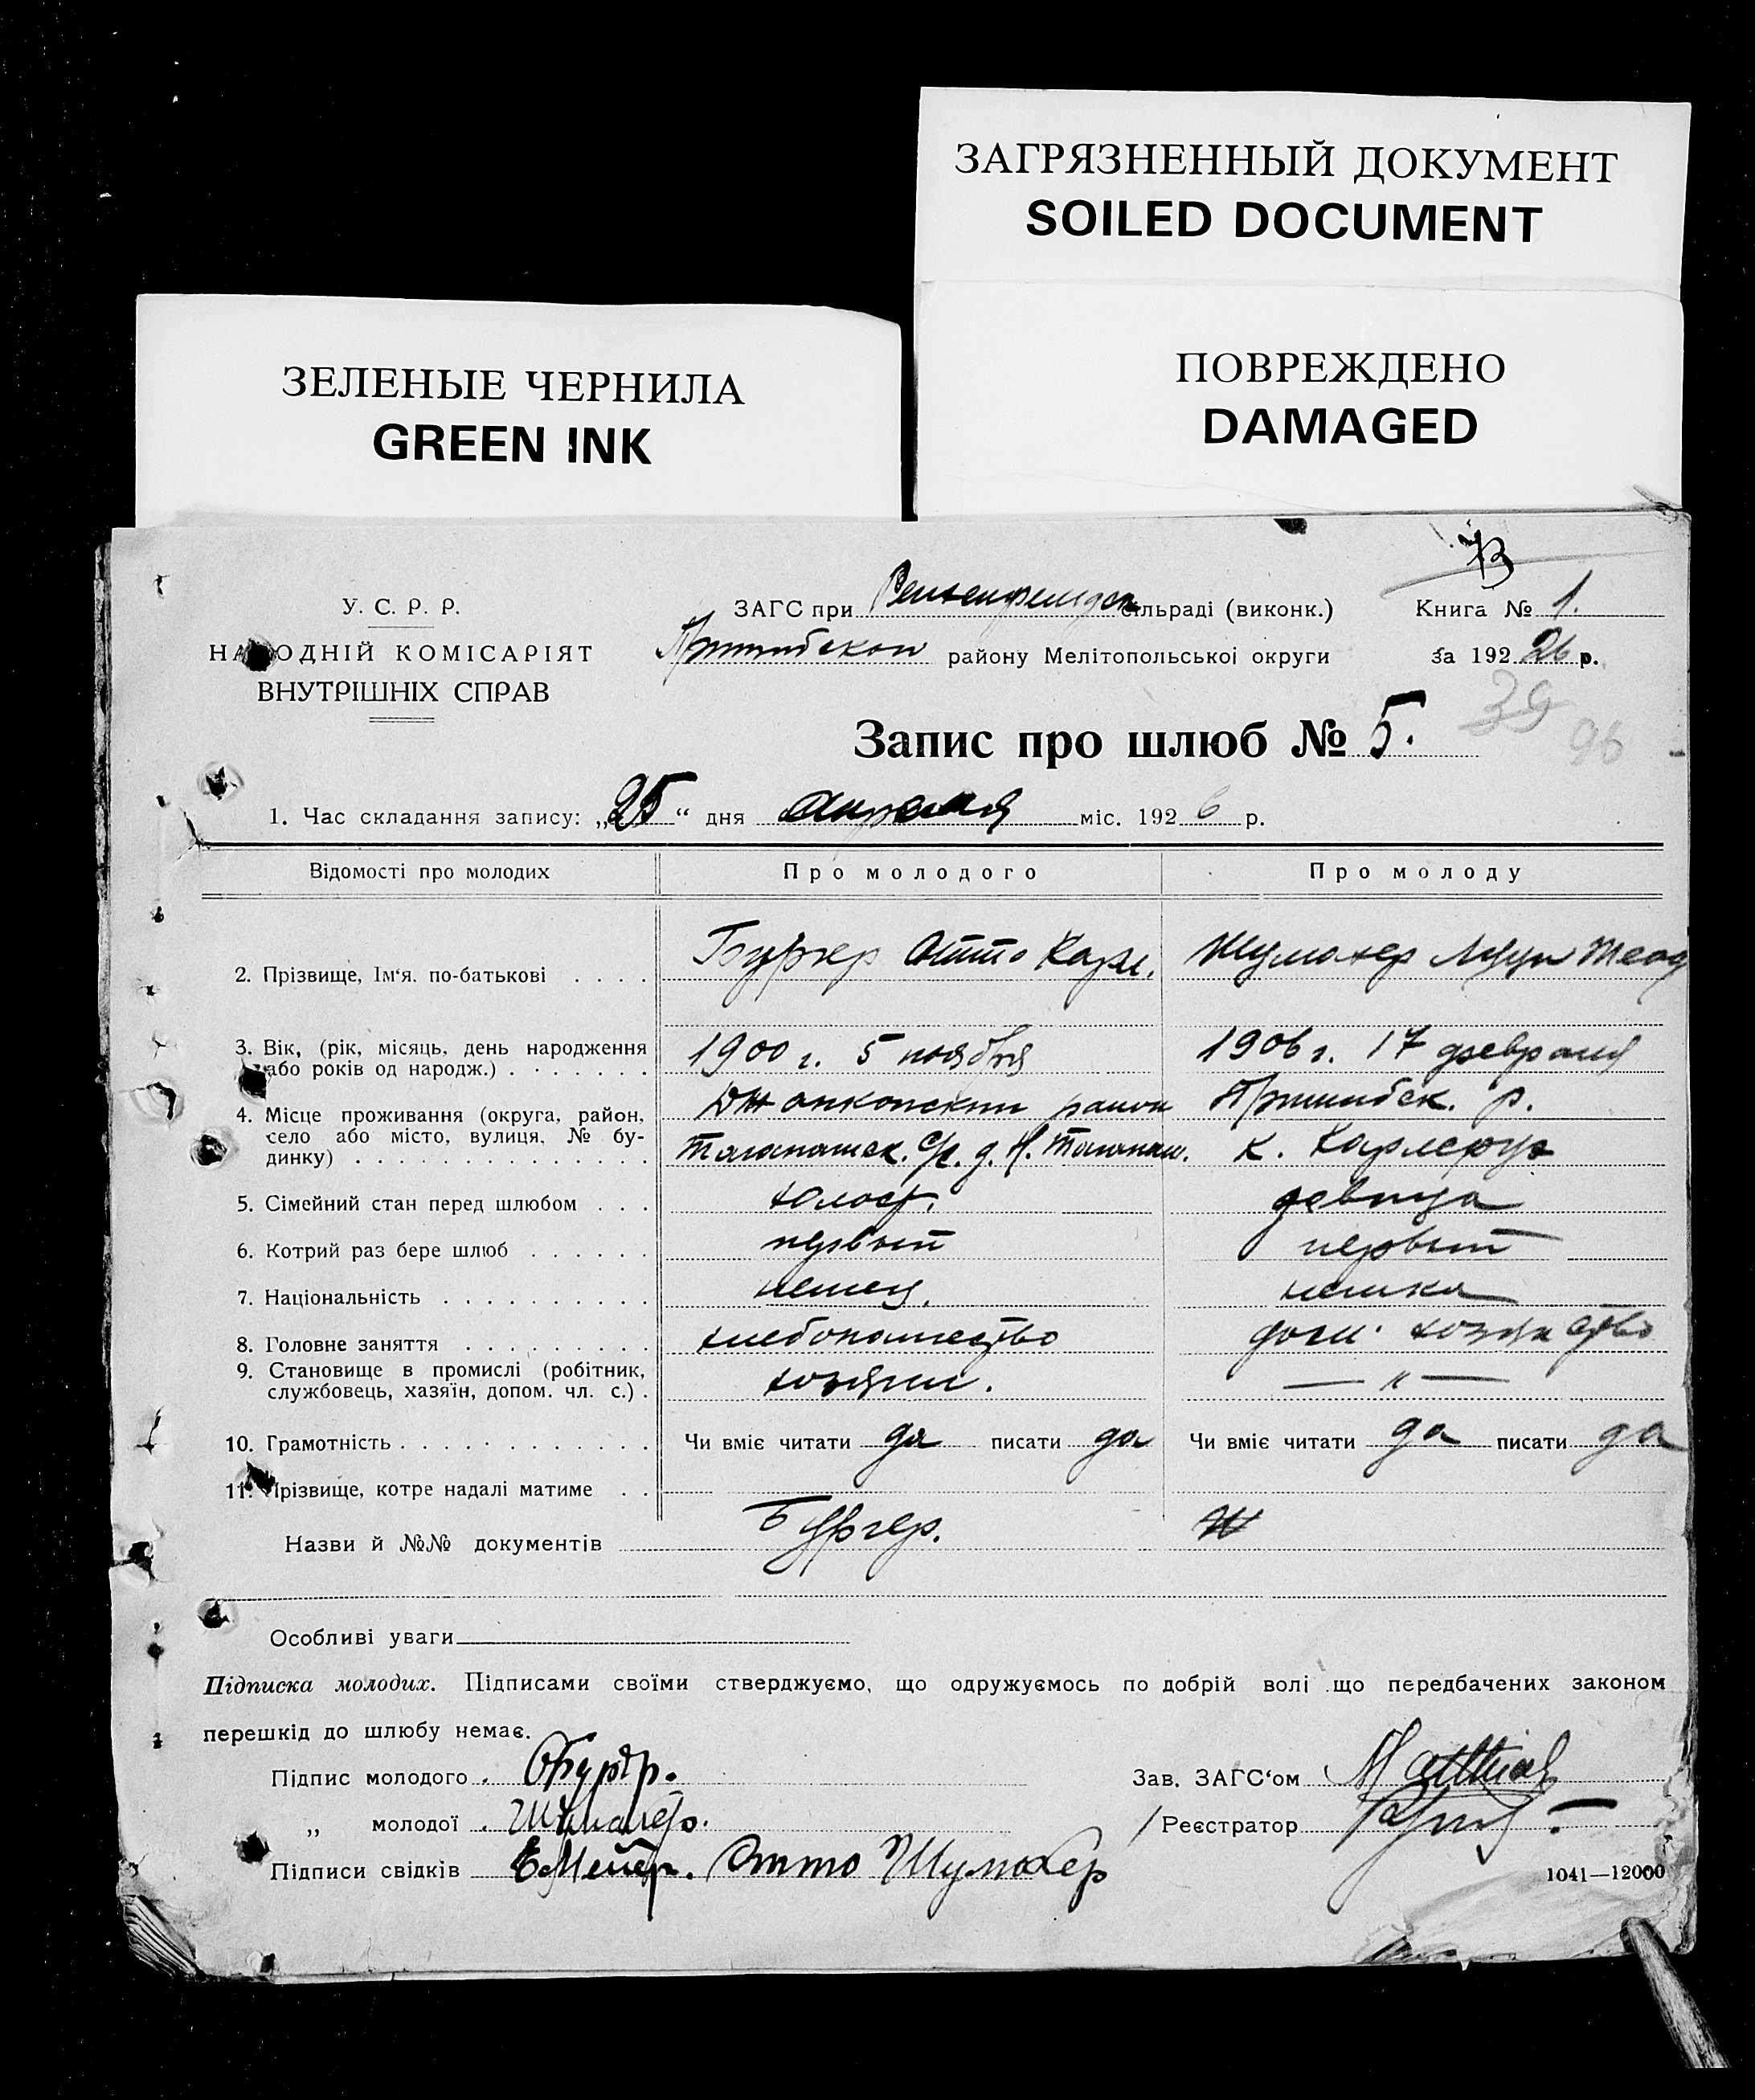 ЗАГРЯЗНЕННЫЙ ДОКУМЕНТ
SOILED DOCUMENT
ЗЕЛЕНЫЕ ЧЕРНИЛА
GREEN INK
ПОВРЕЖДЕНО
DAMAGED
У. С. Р. Р.
НАРОДНІЙ КОМІСАРІЯТ
ВНУТРІШНІХ СПРАВ
ЗАГС при сільраді (виконк.) Книга № 1.
Пришибском району Мелітопольської округи за 192 26 р.
39 96
Запис про шлюб № 5.
1. Час складання запису: „25“ дня апреля міс. 192 6 р.
Відомості про молодих Про молодого Про молоду
2. Прізвище, Ім‘я. по-батькові . . . . Бургер Отто Карл. Шумахер Теод
3. Вік, (рік, місяць, день народження або років од народж.) . . . . . . . 1900 г. 5 ноября 1906 г. 17 февраля
4. Місце проживання (округа, район, село або місто, вулиця, № будинку) . . . Джанкойский район Пришибск. р.
Таганашск. с/с. д. Н. Таганаш. к. Карлсруэ
5. Сімейний стан перед шлюбом . . . холост. девица
6. Котрий раз бере шлюб . . . . . . первый первый
7. Національність . . . . . . . . . . немец. немка
8. Головне заняття . . . . . . . . . хлебопашество дом. хозяйство
9. Становище в промислі (робітник, службовець, хазяїн, допом. чл. с.) . хозяин. — " —
10. Грамотність . . . . . . . . . . . . Чи вміє читати да писати да Чи вміє читати да писати да
11. Прізвище, котре надалі матиме . .
Назви й №№ документів Бургер.
Особливі уваги
Підписка молодих. Підписами своїми стверджуємо, що одружуємось по добрій волі що передбачених законом
перешкід до шлюбу немає.
Підпис молодого . Зав. ЗАГС‘ом Matthias
„ молодої . Шумахер. Реєстратор
Підписи свідків Е. Мейер. Отто Шумахер 1041—12000